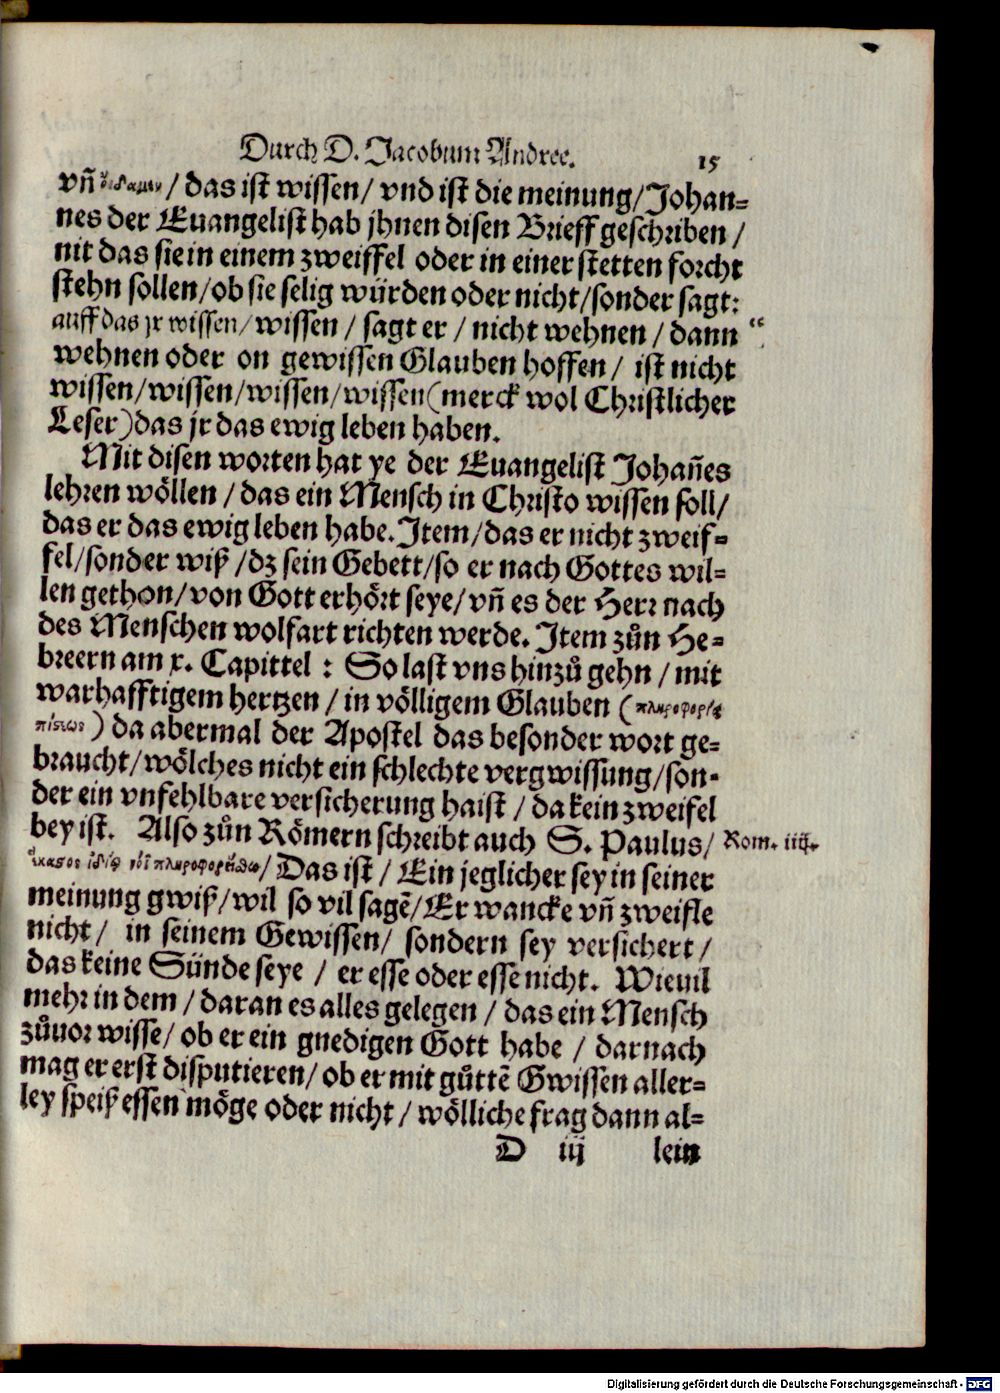 Durch D. Jacobum Andree. 15
vñ οἴδαμεν / das ist wissen / vnd ist die meinung / Johan=
nes der Euangelist hab jhnen disen Brieff geschriben /
nit das sie in einem zweiffel oder in einer stetten forcht
stehn sollen / ob sie selig würden oder nicht / sonder sagt:
auff das jr wissen / wissen / sagt er / nicht wehnen / dann “
wehnen oder on gewissen Glauben hoffen / ist nicht
wissen / wissen / wissen / wissen (merck wol Christlicher
Leser) das jr das ewig leben haben.
Mit disen worten hat ye der Euangelist Johañes
lehren wöllen / das ein Mensch in Christo wissen soll /
das er das ewig leben habe. Item / das er nicht zweif=
fel / sonder wiß / dz sein Gebett / so er nach Gottes wil=
len gethon / von Gott erhört seye / vñ es der Herr nach
des Menschen wolfart richten werde. Item zůn He=
breern am x. Capittel : So last vns hinzů gehn / mit
warhafftigem hertzen / in völligem Glauben (πληροφορίᾳ
πίστεως) da abermal der Apostel das besonder wort ge=
braucht / wölches nicht ein schlechte vergwissung / son=
der ein vnfehlbare versicherung haist / da kein zweifel
bey ist. Also zůn Römern schreibt auch S. Paulus / Rom. iiij.
ἕκαστος ἰδίῳ νοῒ πληροφορείσθω / Das ist / Ein jeglicher sey in seiner
meinung gwiß / wil so vil sagẽ / Er wancke vñ zweifle
nicht / in seinem Gewissen / sondern sey versichert /
das keine Sünde seye / er esse oder esse nicht. Wieuil
mehr in dem / daran es alles gelegen / das ein Mensch
zůuor wisse / ob er ein gnedigen Gott habe / darnach
mag er erst disputieren / ob er mit gůttẽ Gwissen aller=
ley speiß essen möge oder nicht / wölliche frag dann al=
D iij lein
Digitalisierung gefördert durch die Deutsche Forschungsgemeinschaft - DFG